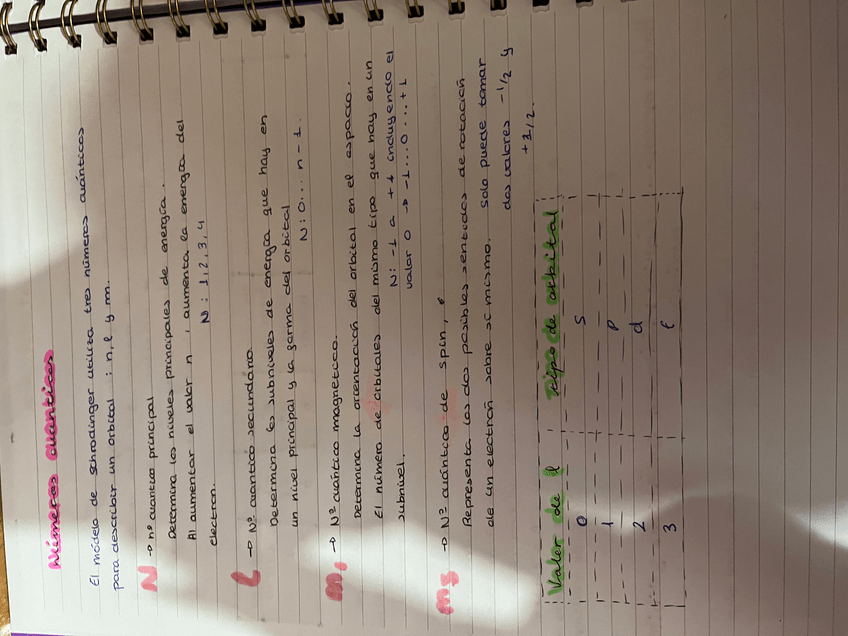 Números cuánticos
El módelo de schrodinger utiliza tres números cuánticos
para describir un orbital : n, l y m.
N → nº cuantico principal
Determina los niveles principales de energía.
Al aumentar el valor n , aumenta la energía del
electron.
N : 1, 2, 3, 4
l → Nº cuántico secundario
Determina los subniveles de energía que hay en
un nivel principal y la forma del orbital
N : 0 ... n - 1.
m, → Nº cuántico magnetico.
Determina la orientación del orbital en el espacio.
El número de orbitales del mismo tipo que hay en un
subnivel.
N: -1 a +1 incluyendo el
valor 0 → -1 ... 0 ... +1
ms → Nº cuántico de spin,
Representa los dos posibles sentidos de rotación
de un electrón sobre sí mismo.
solo puede tomar
dos valores -1/2 y
+1/2.
Valor de l tipo de orbital
0 s
1 p
2 d
3 f